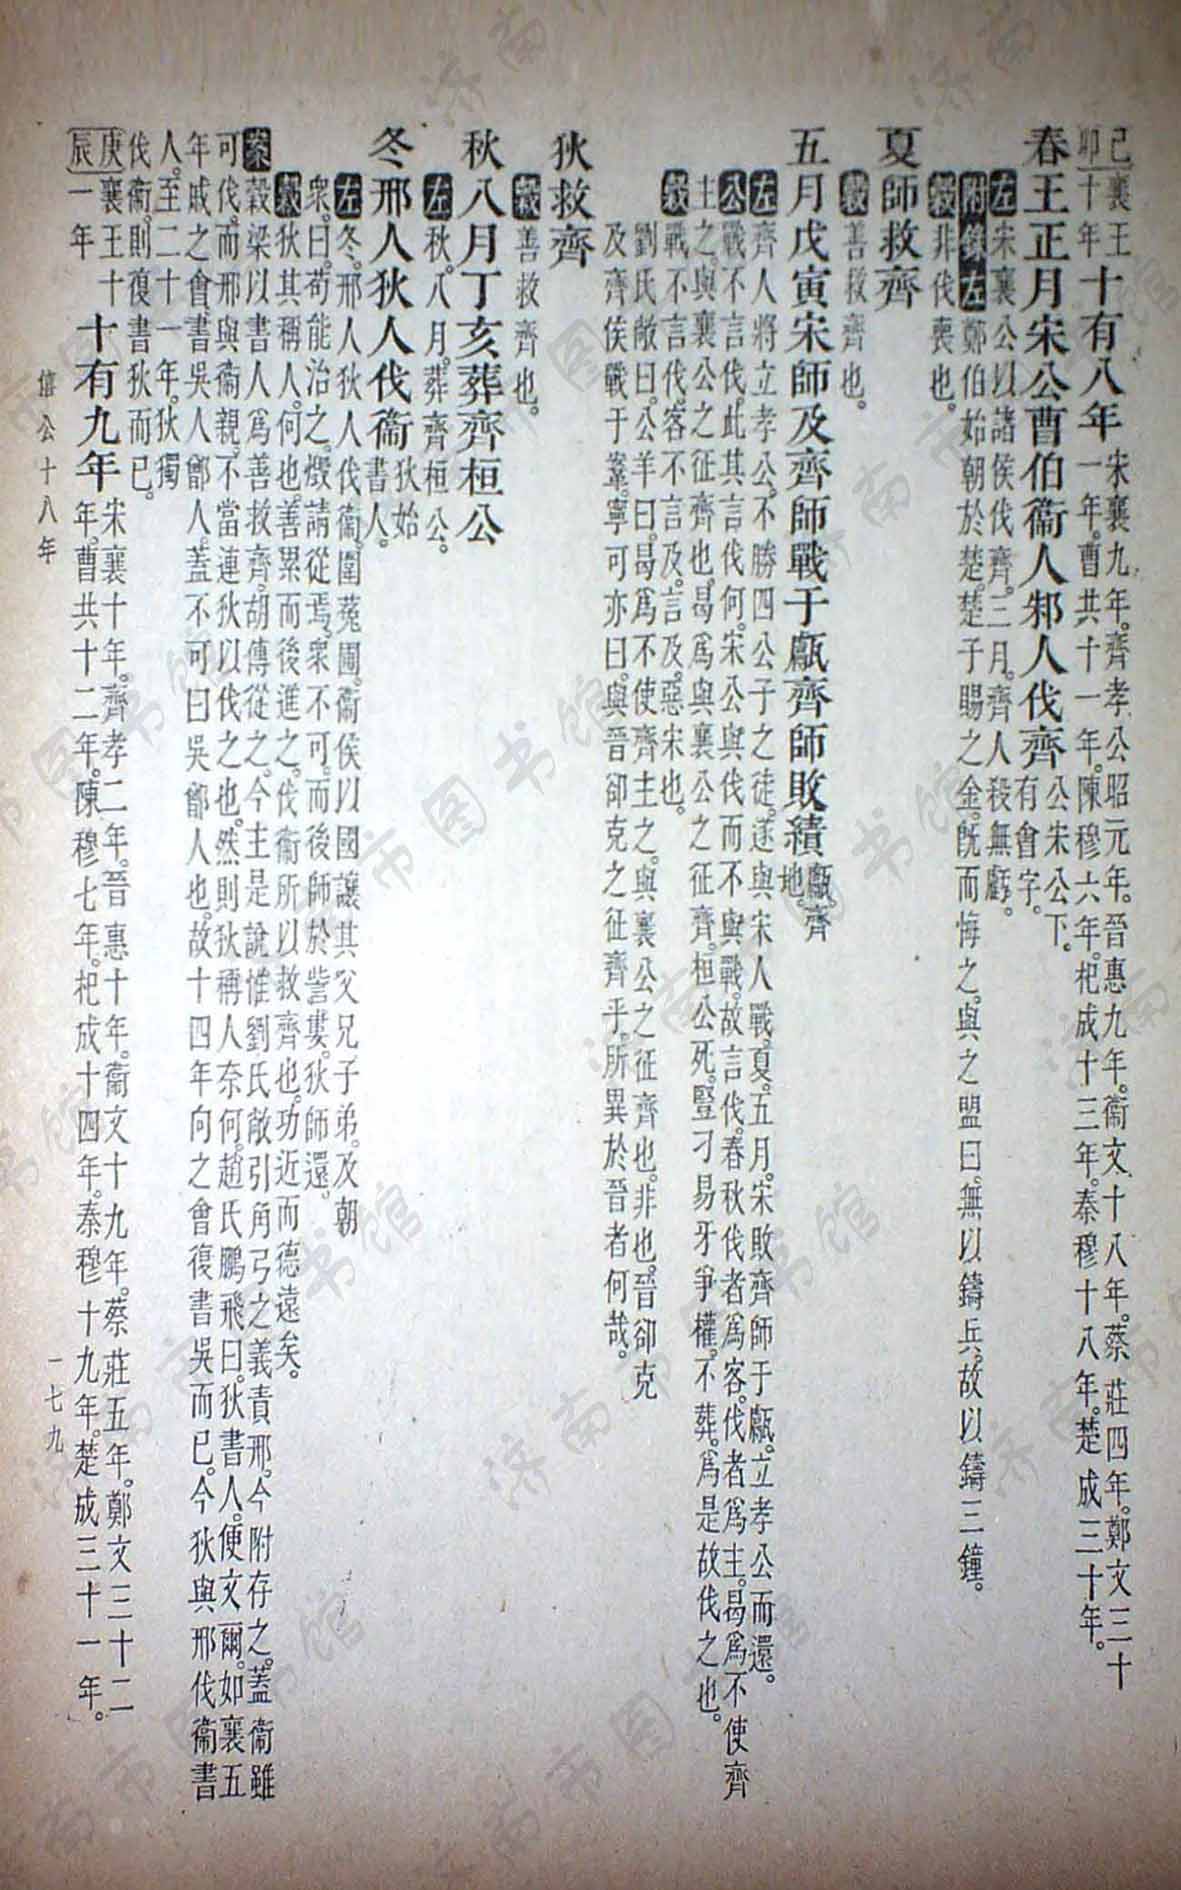 己卯
襄王十年
十有八年
宋襄九年。齊孝公昭元年。晉惠九年。衞文十八年。蔡莊四年。鄭文三十
一年。曹共十一年。陳穆六年。杞成十三年。秦穆十八年。楚成三十年。
春王正月宋公曹伯衞人邾人伐齊
公宋公下。
有會字。
左宋襄公以諸侯伐齊。三月。齊人殺無虧。
附錄左鄭伯始朝於楚。楚子賜之金。旣而悔之。與之盟曰。無以鑄兵。故以鑄三鐘。
穀非伐喪也。
夏師救齊
穀善救齊也。
五月戊寅宋師及齊師戰于甗齊師敗績
甗。齊
地。
左齊人將立孝公。不勝四公子之徒。遂與宋人戰。夏。五月。宋敗齊師于甗。立孝公而還。
公戰不言伐。此其言伐何。宋公與伐而不與戰。故言伐。春秋伐者爲客。伐者爲主。曷爲不使齊
主之。與襄公之征齊也。曷爲與襄公之征齊。桓公死。豎刁易牙爭權。不葬。爲是故伐之也。
穀戰不言伐。客不言及。言及。惡宋也。
劉氏敞曰。公羊曰。曷爲不使齊主之。與襄公之征齊也。非也。晉卻克
及齊侯戰于鞌。寧可亦曰。與晉卻克之征齊乎。所異於晉者何哉。
狄救齊
穀善救齊也。
秋八月丁亥葬齊桓公
左秋。八月。葬齊桓公。
冬邢人狄人伐衞
狄始
書人。
左冬。邢人狄人伐衞。圍菟圃。衞侯以國讓其父兄子弟。及朝
衆。曰。苟能治之。燬請從焉。衆不可。而後師於訾婁。狄師還。
穀狄其稱人。何也。善累而後進之。伐衞。所以救齊也。功近而德遠矣。
案穀梁以書人爲善救齊。胡傳從之。今主是說。惟劉氏敞引角弓之義責邢。今附存之。蓋衞雖
可伐。而邢與衞親。不當連狄以伐之也。然則狄稱人奈何。趙氏鵬飛曰。狄書人。便文爾。如襄五
年戚之會書吳人鄫人。蓋不可曰吳鄫人也。故十四年向之會復書吳而已。今狄與邢伐衞書
人。至二十一年。狄獨
伐衞。則復書狄而已。
庚辰
襄王十一年
十有九年
宋襄十年。齊孝二年。晉惠十年。衞文十九年。蔡莊五年。鄭文三十二
年。曹共十二年。陳穆七年。杞成十四年。秦穆十九年。楚成三十一年。
僖公十八年
一七九
济南市图书馆